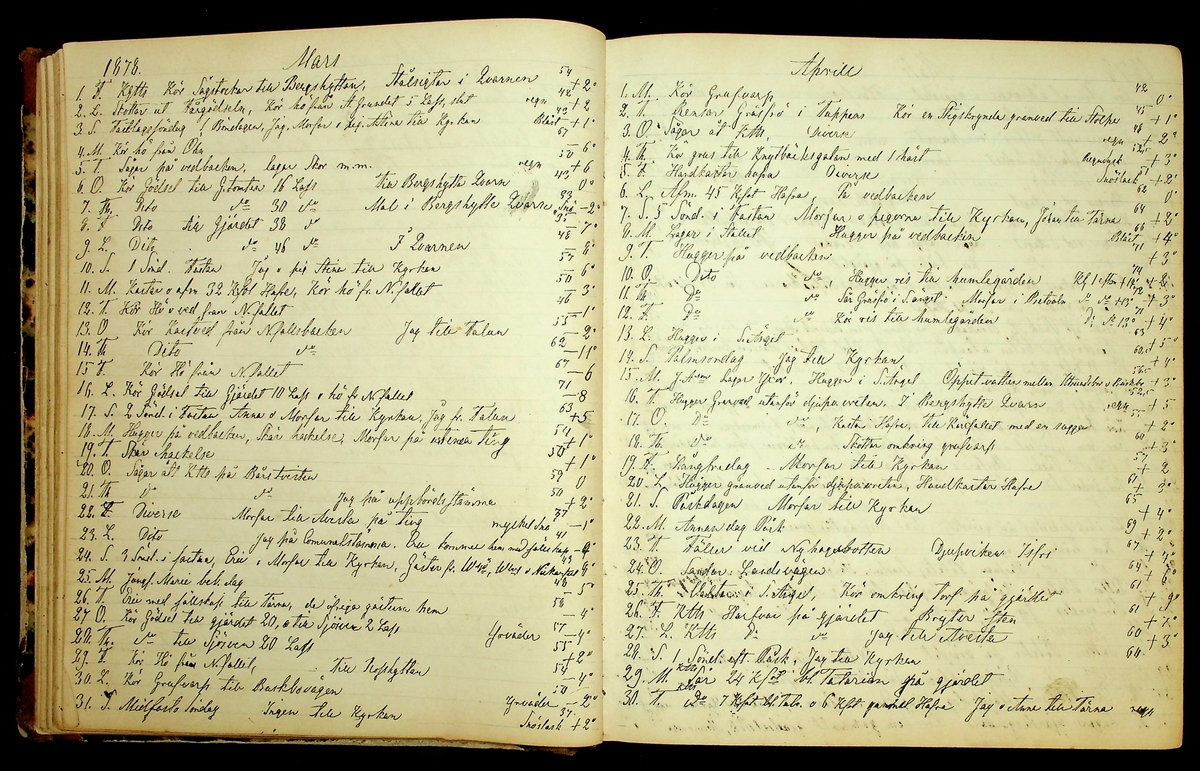 1878. Mars
1. F Ktts Kör Sågstockar till Bergshyttan, Stålsigtar i Qvarnen 54 + 2°
2. L. Skottar ut Fårgödseln, Kör hö från St Grundet 5 Lass, slut regn 42 + 2
3. S. Fastlagssöndag / Bönedagen, Jag, Morfar o pig. Stina till Kyrkan Blåst 42 + 1°
4. M. Kör hö från Okn 57 6°
5. T. Sågar på vedbacken, lagar Skor m.m. regn 50 + 6
6. O. Kör Gödsel till G.tomten 16 Lass till Bergshytte Qvarn 43 0°
7. Th. Dito do 30 do Mal i Bergshytte Qvarn Snö 33 - 2°
8. F Dito till Gjärdet 38 do 35 - 7°
9. L. Dito do 46 do I Qvarnen 48 - 8°
10. S. 1 Sönd. Fastan Jag o pig Stina till Kyrkan 57 6°
11. M. Kastar o afm 32 Kpst Hafre, Kör hö fr. N.fallet 50 - 3°
12. T. Kör Hö o ved från N.fallet 46 - 1°
13. O Kör Kastved från N.fallsbacken Jag till Falun 55 - 2°
14. Th Dito do 62 - 11°
15 F. Kör Hö från N.fallet 67 - 6
16. L. Kör Gödsel till Gjärdet 10 Lass o hö fr N.fallet 71 - 8
17. S. 2 Sönd. i Fastan Anna o Morfar till Kyrkan, Jag fr. Falun 63 + 5
18. M. Hugger på vedbacken, Skär hackelse, Morfar på extra ting 54 + 1°
19. T. Skär hackelse 50 + 1°
20. O. Sågar åt Ktts på Bärstveten 59 0
21. Th do do Jag på uppbördsstämma 50 + 2°
22. F Diverse Morfar till Avesta på Ting mycket Snö 37 - 1°
23. L. Dito Jag på Comunalstämma. Eric kommer hem med sällskap 41 - 4°
24. S. 3 Sönd. i fastan, Eric o Morfar till Kyrkan, Gäster fr.
25. M. Jungf. Marie beb. dag 48 - 5
26. T. Eric med sällskap till Tärna, de öfriga gästern hem 58
27 O. Kör Gödsel till gjärdet 20, o till Sjöviken 2 Lass - 4°
28. Th. do till Sjöviken 20 Lass Yrväder 57 - 4°
29. F. Kör Hö från N.fallet, till Nohyttan 55 + 2°
30. L. Kör Grufvarp till Backbovägen 54 - 4°
31. S. Midfasto Söndag Ingen till Kyrkan Yrväder 50 - 2°
Snöslask 37 + 2°
Aprill
1. M. Kör Grufvarp 42 0°
2. T. Rensar Gräsfrö i Tappens Kör en Stigskrynda granved till Stolpe 45 + 1°
3. O. Sågar åt Ktts, Diverse 48 + 2°
4. Th. Kör grus till Knytbäcksgatan med 1 häst regn 52 + 3°
5. F. Handkastar hafra Diverse Snöslask + 2°
6. L. Afm. 45 Kpst Hafra På vedbacken 62 0°
7. S. 5 Sönd. i Fastan Morfar o pigorna till Kyrkan, Johan till Tärna 64 + 2°
8. M. Lagar i Stallet Hugger på vedbacken Blåst 66 + 4°
9. T. Hugger på vedbacken 71 + 3°
10. O. Dito do Hugger ris till humlegården Kl 1 efm + 14° 74 + 2°
11. Th Do do Sår Gräsfrö i S.änget Morfar i do do + 13° 72 + 3°
12. F. Do do Kör ris till humlegården Do do 13° 71 + 4°
13. L. Hugger i S.Änget 63 + 5°
14. S. Palmsöndag Jag till Kyrkan 60 + 4°
15. M. lagar Skor. Hugger i S.Änget Öppet vatten mellan 56 + 3°
16. T. Hugger Granved utanför djupa veten, I Bergshytte Qvarn regn 52 + 5
17. O. Do do, Kasta Hafre, till Karlfallet med en sugga 55 + 2°
18. Th. do do Skottar omkring grufvarp 60 + 3°
19. F. Långfredag Morfar till Kyrkan 57 + 2
20. L. Hugger granved utanför djupa veten, Handkastar Hafre 61 + 3°
21. S. Påskdagen Morfar till Kyrkan 65 + 4°
22. M. Annan dag Påsk 69 + 2°
23. T. Fäller vid Nyhagsbotten Djupviken Isfri 67
24. O. Sandar Landsvägen 64 + 6°
25. Th. i S.Änget, Kör omkring torf på gjärdet 61 + 9°
26. F. Ktts Harfvar på gjärdet Bryter Sten 61 + 7°
27. L. Ktts Do do Jag till Avesta 60 + 3°
28. S. 1 Sönd. eft. Påsk, Jag till Kyrkan 64
29. M. Ktts Sår 24 Kpst Bl Tatarien på gjärdet
30. T. Ktts Do 7 Kpst Bl Tatr. o 6 Kpst gammel Hafre Jag o Anna till Tärna regn